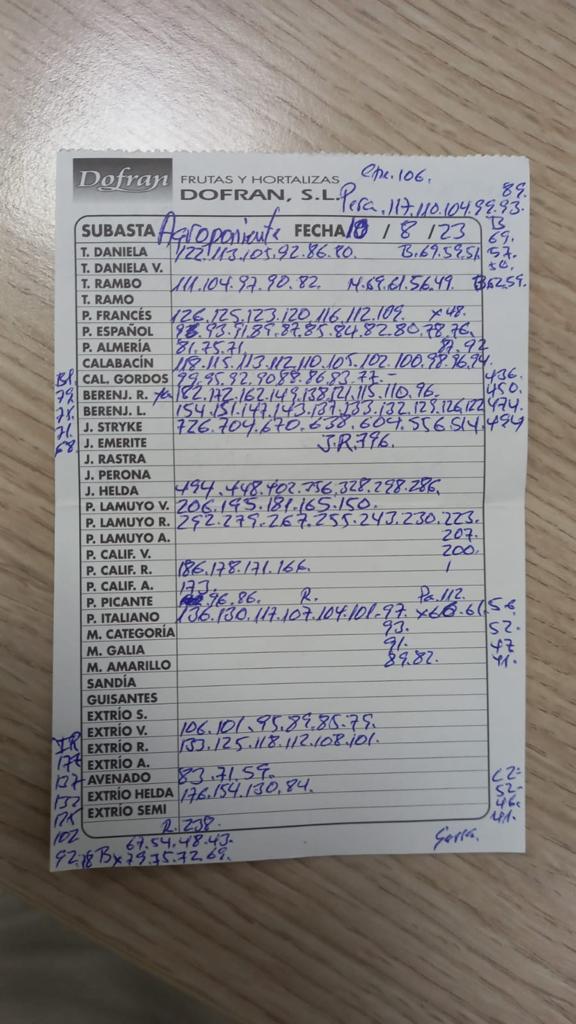 Dofran
FRUTAS Y HORTALIZAS
DOFRAN, S.L.
106.
Pera. 117.110.104.99.93. 89.
SUBASTA Agroponiente FECHA 10 / 8 / 23
B 69. 57. 50.
T. DANIELA 122.113.105.92.86.80. B.69.59.51
T. DANIELA V.
T. RAMBO 111.104.97.90.82. M.69.61.56.49. B.62.59.
T. RAMO
P. FRANCÉS 126.125.123.120.116.112.109. x48.
P. ESPAÑOL 93.91.89.87.85.84.82.80.78.76.
P. ALMERÍA 81.75.71. 87.92
CALABACÍN 118.115.113.112.110.105.102.100.98.96.94.
CAL. GORDOS 99.95.92.90.88.86.83.77.-
BERENJ. R. 182.172.162.149.138.121.115.110.96.
BERENJ. L. 154.151.147.143.137.133.132.129.126.122
J. STRYKE 726.704.670.638.604.556.514.494
436.
450.
474.
79.
78.
71.
68
J. EMERITE J.R.796.
J. RASTRA
J. PERONA
J. HELDA 494.448.402.356.328.298.286.
P. LAMUYO V. 206.195.181.165.150.
P. LAMUYO R. 292.279.267.255.243.230.223.
P. LAMUYO A. 207.
P. CALIF. V. 200.
P. CALIF. R. 186.178.171.166.
P. CALIF. A. 173.
P. PICANTE 96.86. R. Pa.112.
P. ITALIANO 136.130.117.107.104.101.97. 61.56.
M. CATEGORÍA 93. 52.
M. GALIA 91. 47
M. AMARILLO 89.82. 41.
SANDÍA
GUISANTES
EXTRÍO S.
EXTRÍO V. 106.101.95.89.85.79.
EXTRÍO R. 133.125.118.112.108.101.
EXTRÍO A.
AVENADO 83.71.59.
EXTRÍO HELDA 176.154.130.84.
EXTRÍO SEMI
137
132
125
102
92.
R.238.
67.54.48.43.
Bx79.75.72.69.
52-
46.
41.